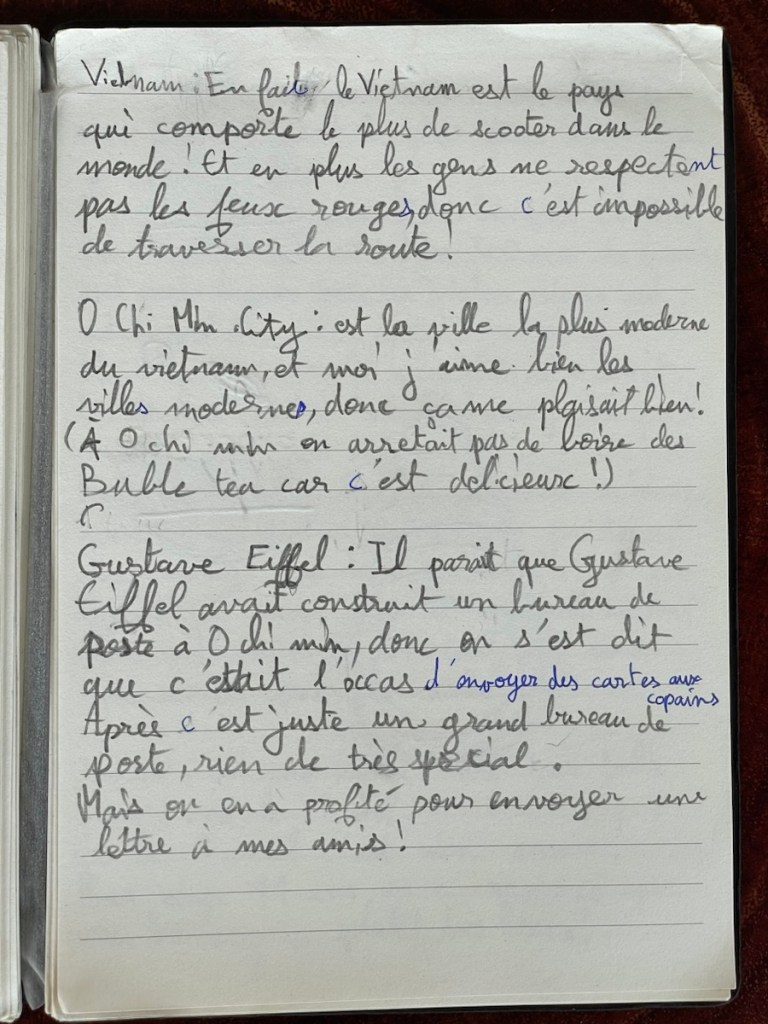 Vietnam : En fait le Vietnam est le pays
qui comporte le plus de scooter dans le
monde ! Et en plus les gens ne respectent
pas les feux rouges, donc c'est impossible
de traverser la route !
O Chi Min City : est la ville la plus moderne
du vietnam, et moi j'aime bien les
villes modernes, donc ça me plaisait bien !
(À O chi min on arretait pas de boire des
Buble tea car c'est delicieux !)
Gustave Eiffel : Il parait que Gustave
Eiffel avait construit un bureau de
poste à O chi min, donc on s'est dit
que c'était l'occas d'envoyer des cartes aux
copains
Après c'est juste un grand bureau de
poste, rien de très spécial.
Mais on en a profité pour envoyer une
lettre à mes amis !